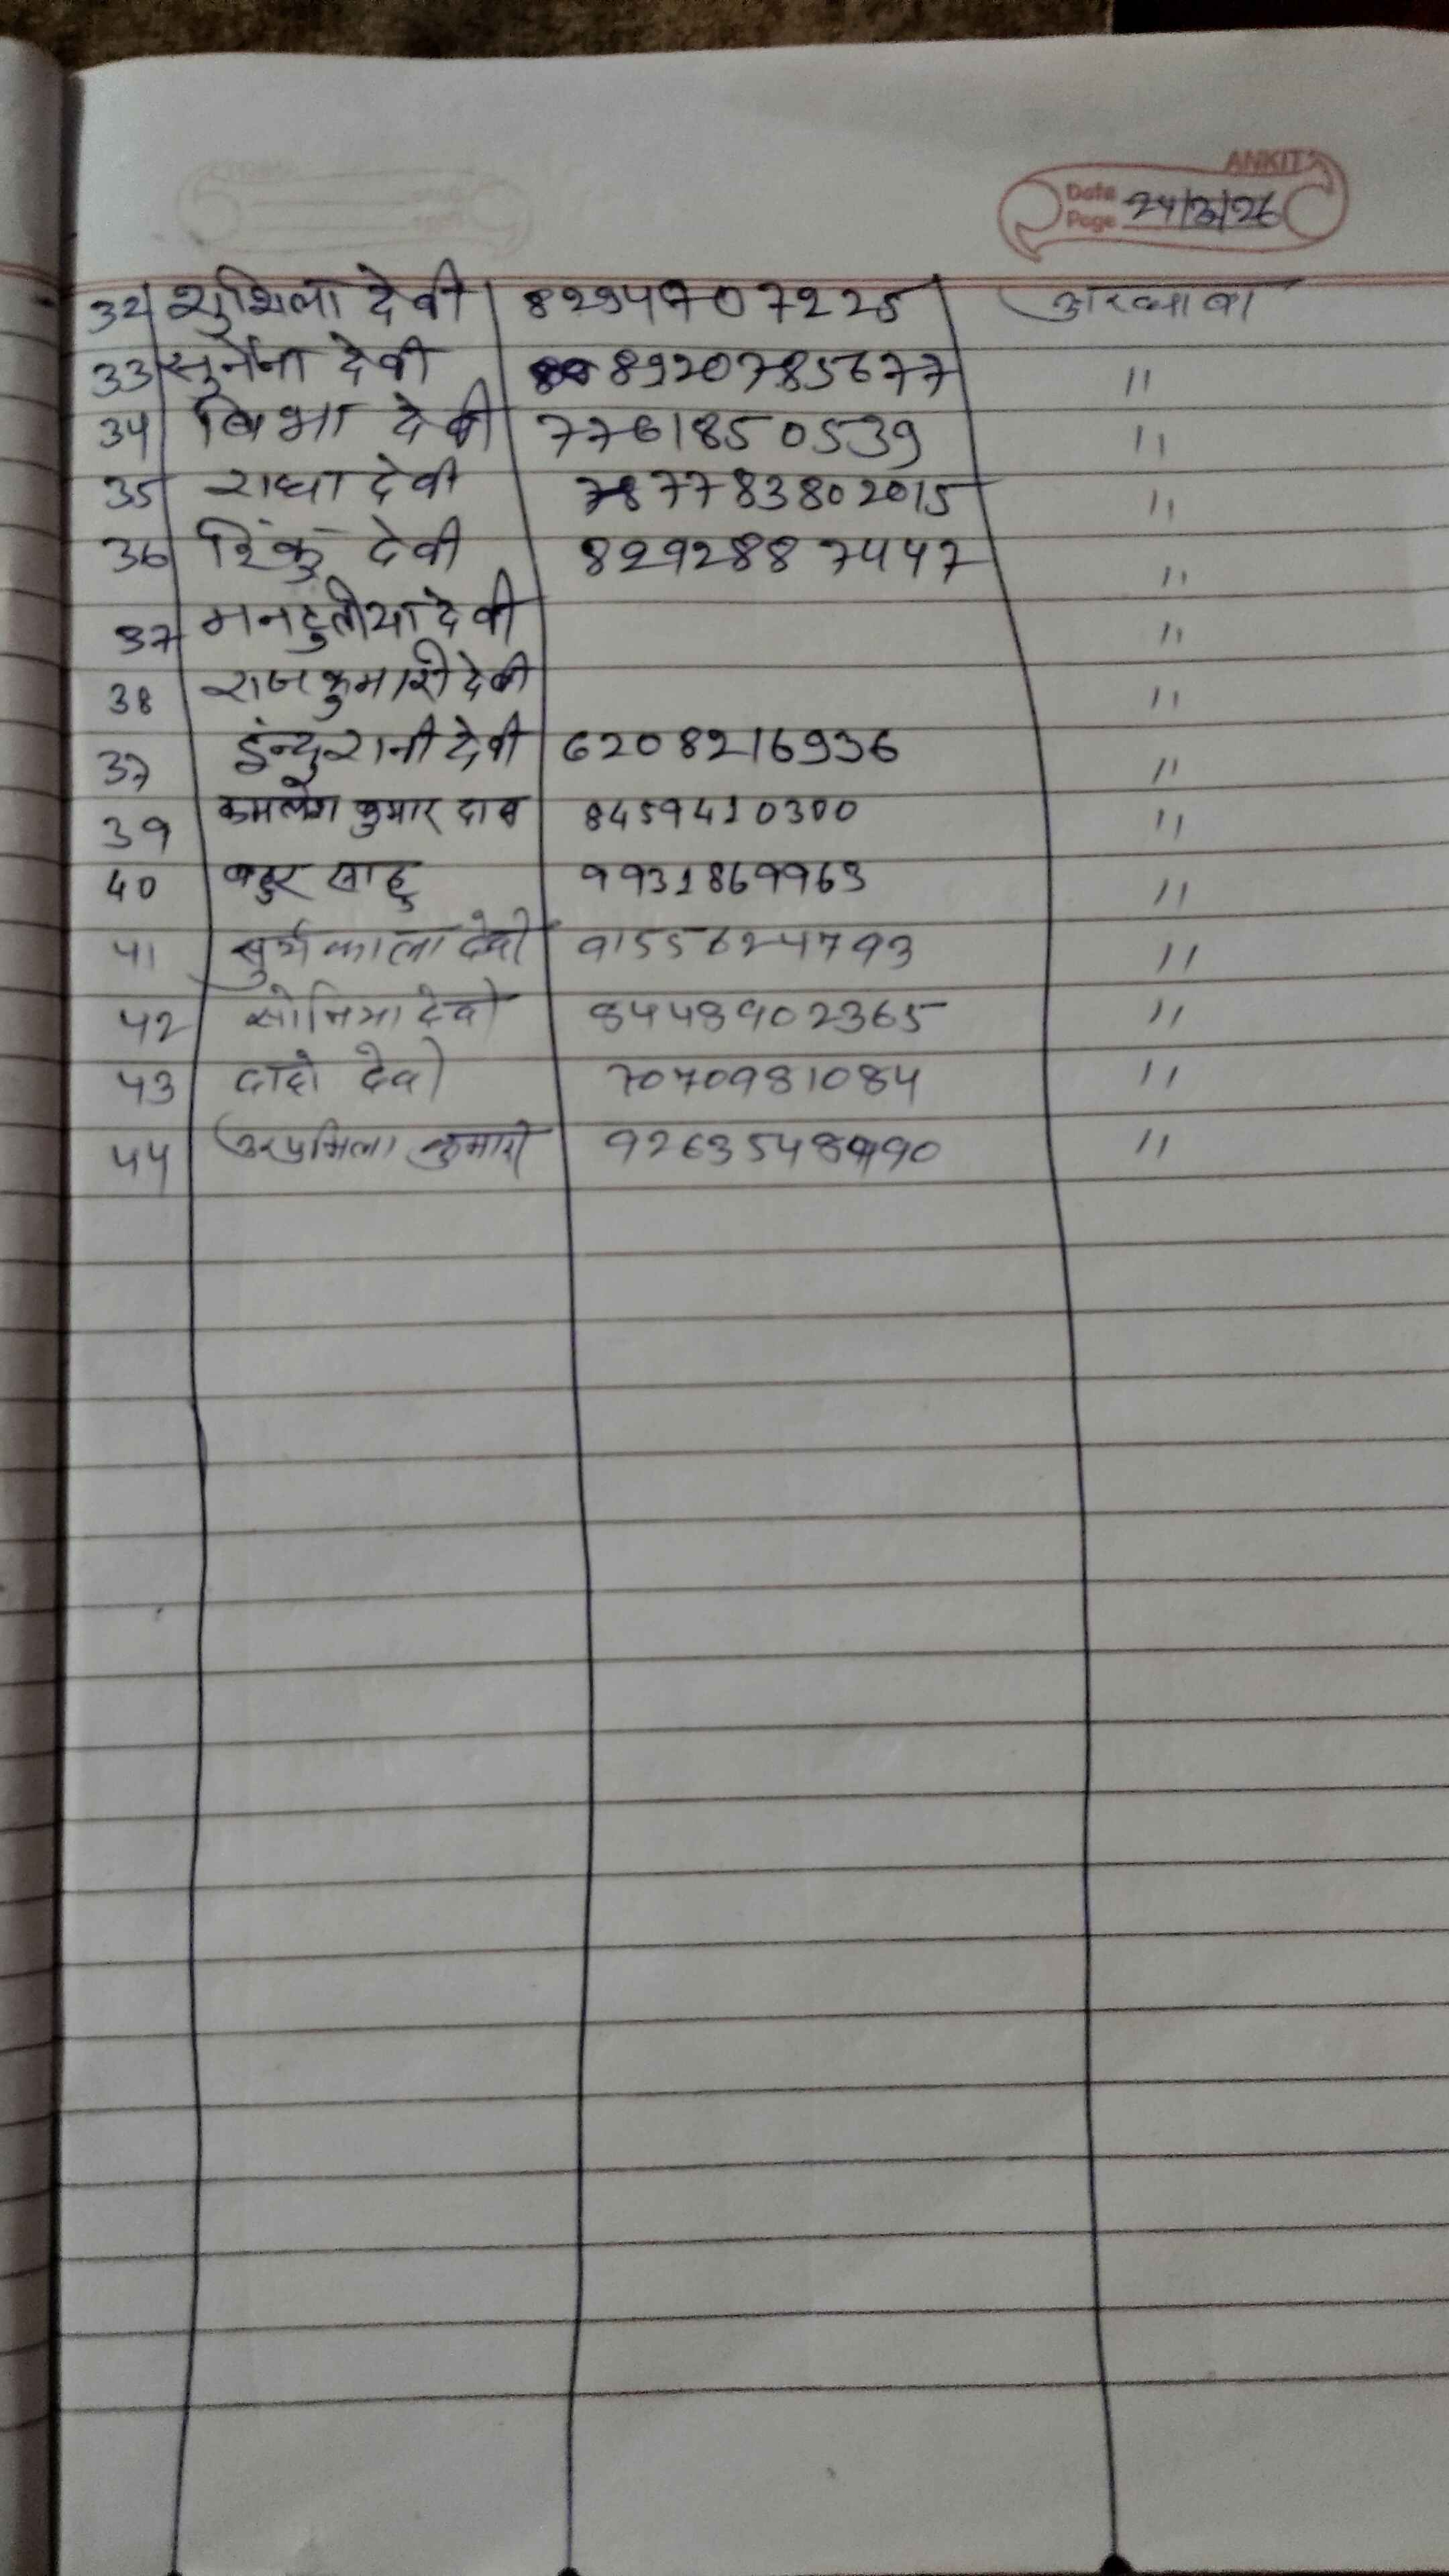 ANKIT
Date
Page 24/3/26
32 सुशिला देवी 8294707225
33 सुनैना देवी 8920785677 "
34 विभा देवी 7761850539 "
35 राधा देवी 7783802015 "
36 रिंकु देवी 8292887447 "
37 देवी "
38 राजकुमारी देवी "
37 इन्दु रानी देवी 6208216936 "
39 कमलेश कुमार दास 8459410300 "
40 साहु 9931869963 "
41 सुर्य काला देवी 9155624793 "
42 सोनिया देवी 8448902365 "
43 दादो देवी 7070981084 "
44 कुमारी "